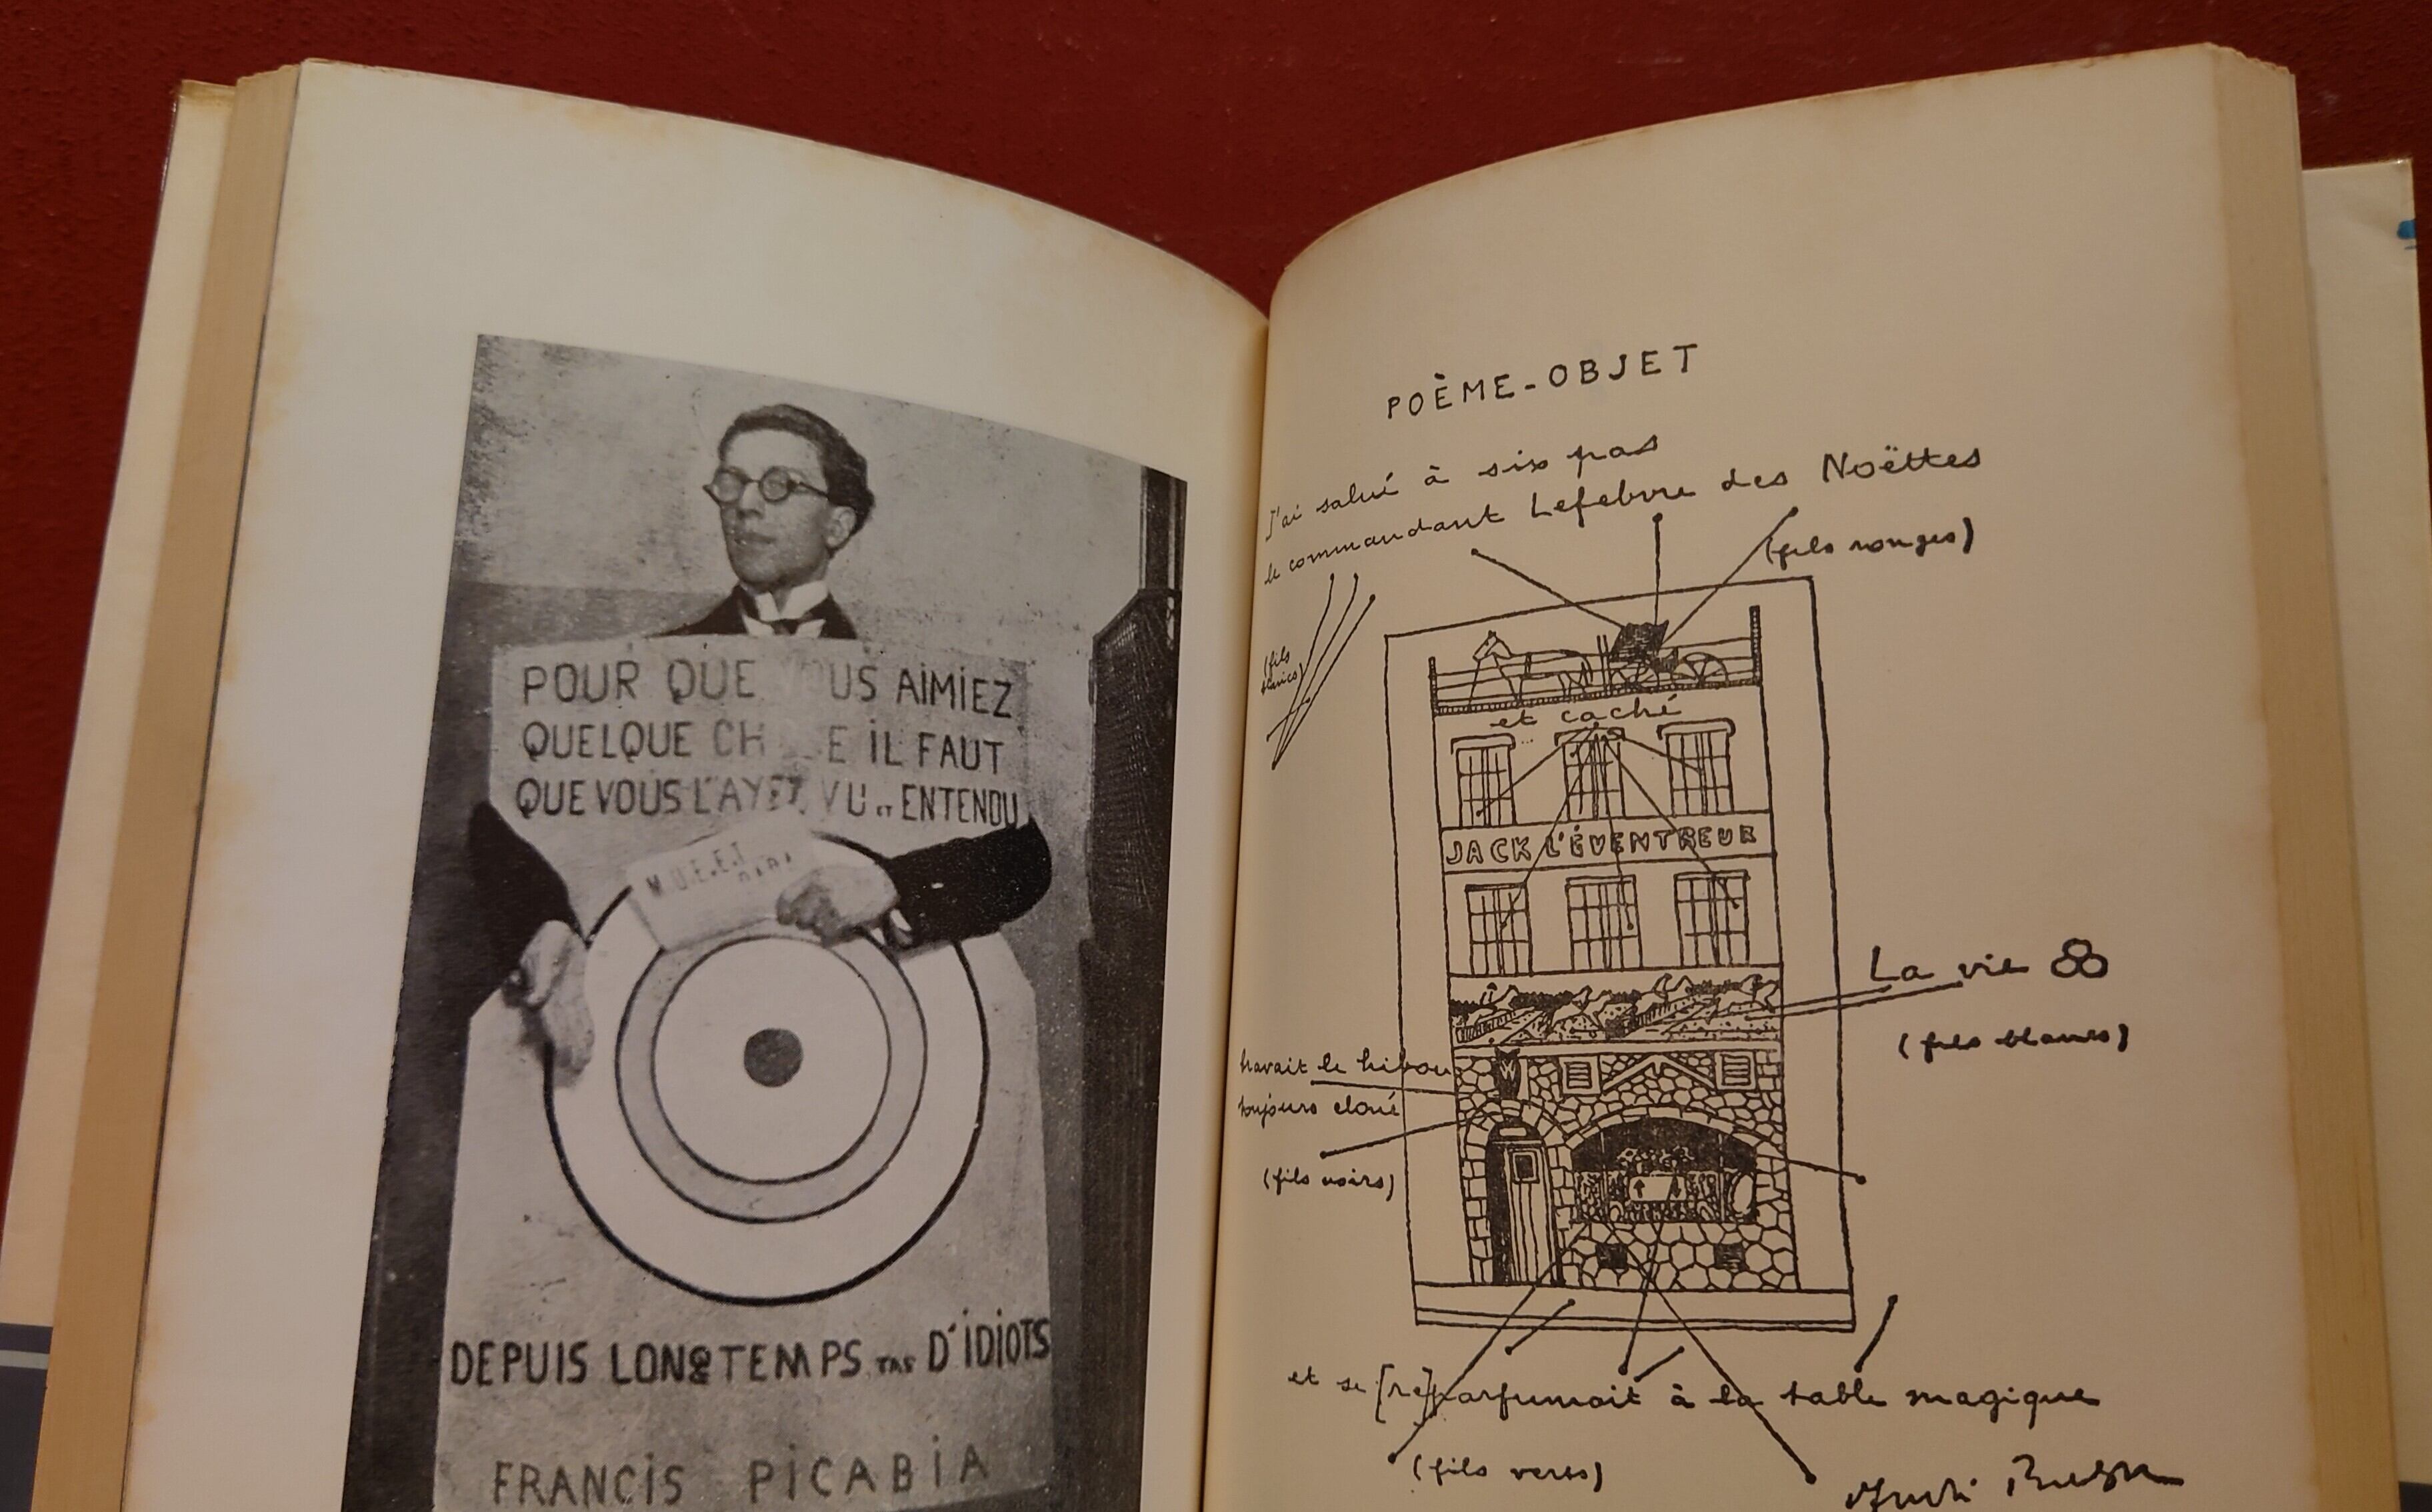 POUR QUE VOUS AIMIEZ
QUELQUE CHOSE IL FAUT
QUE VOUS L'AYEZ VU ET ENTENDU
DEPUIS LONGTEMPS TAS D'IDIOTS
FRANCIS PICABIA
POÈME-OBJET
J'ai salué à six pas
le commandant Lefebvre des Noëttes
(fils rouges)
(fils blancs)
et caché
JACK L'ÉVENTREUR
La vie
(fils blancs)
bravait le hibou
toujours cloué
(fils noirs)
et se [re]parfumait à la table magique
(fils verts)
André Breton